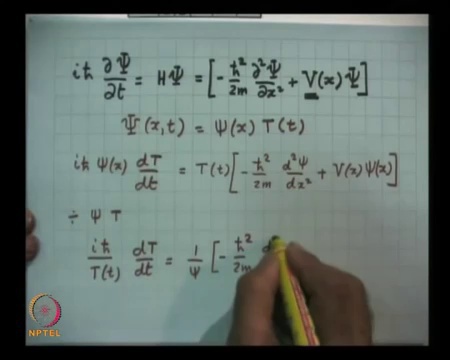 iħ ∂Ψ/∂t = HΨ = [-ħ²/2m ∂²Ψ/∂x² + V(x)Ψ]
Ψ(x,t) = ψ(x) T(t)
iħ ψ(x) dT/dt = T(t)[-ħ²/2m d²ψ/dx² + V(x)ψ(x)]
÷ ψ T
iħ/T(t) dT/dt = 1/ψ [-ħ²/2m d
NPTEL